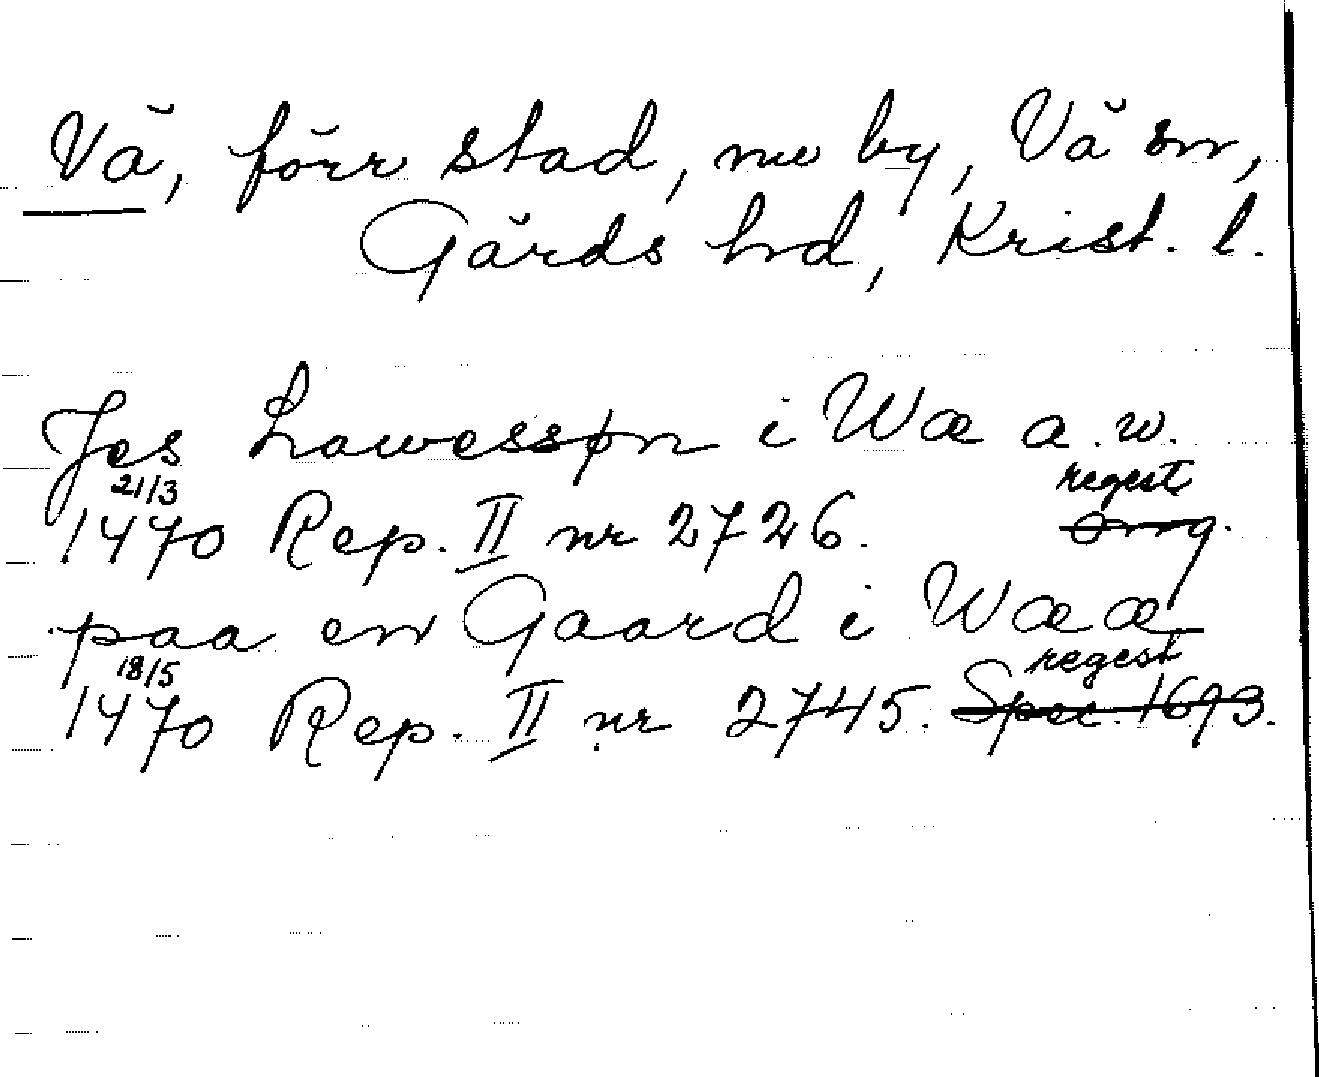 Vä, förr stad, nu by, Vä sn,
Gärds hd, Krist. l.
Jes Lawessøn i Wæ a.w.
21/3 regest
1470 Rep. II nr 2726. omg.
paa en Gaard i Wææ
18/5 regest
1470 Rep. II nr 2745. Spec. 1693.